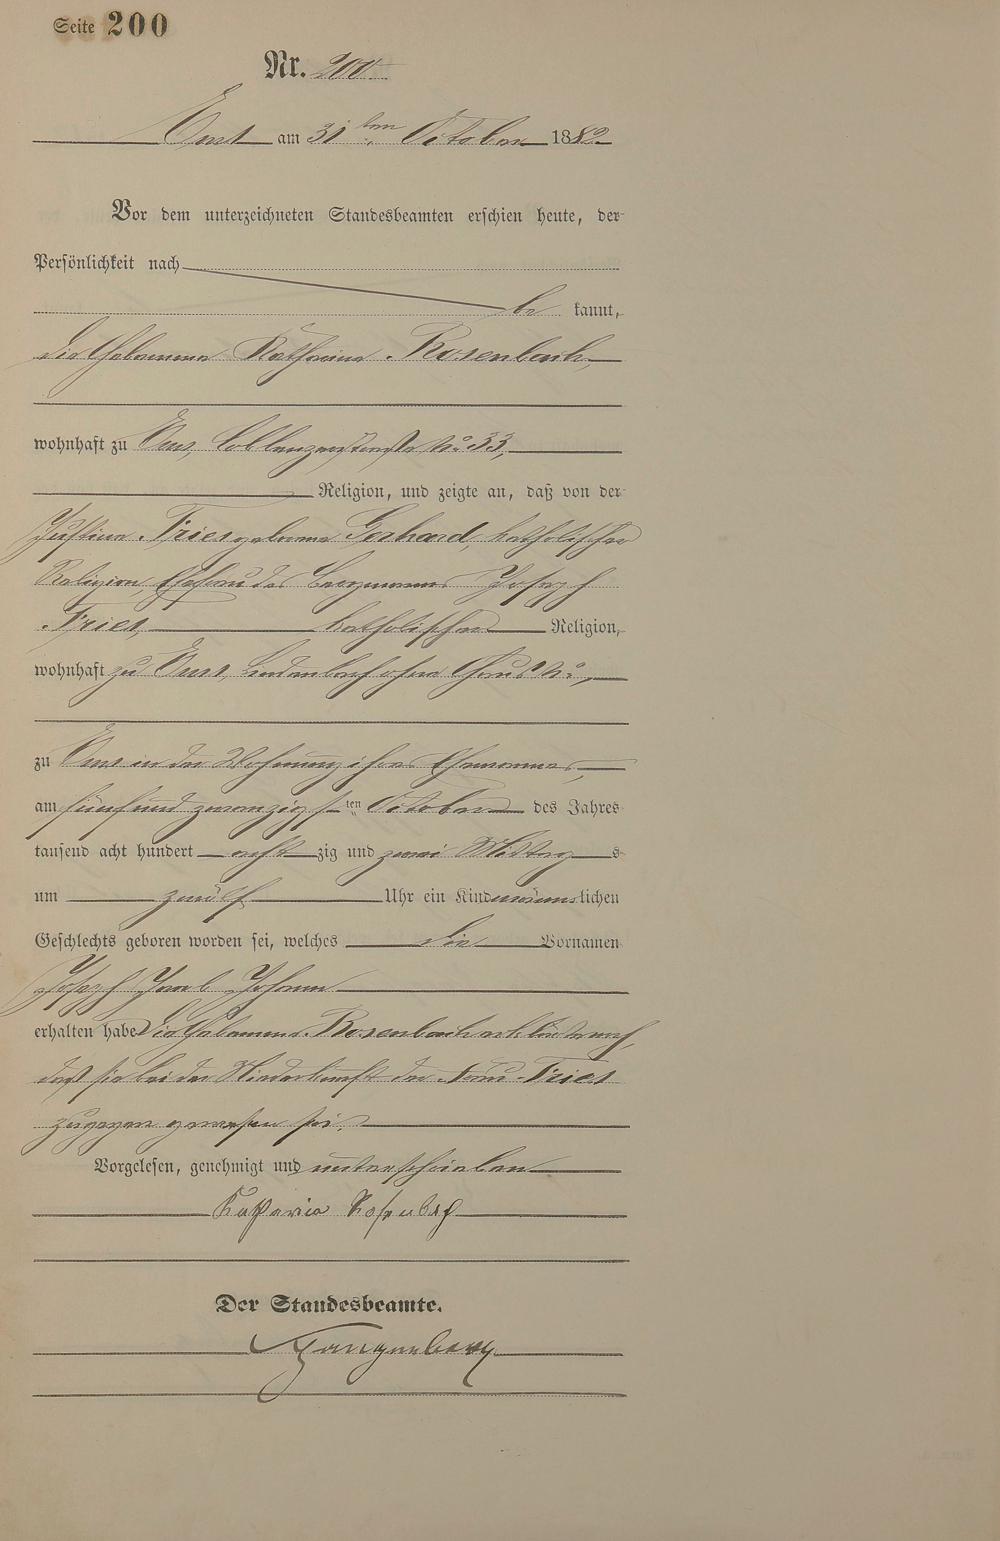 Seite 200
Nr. 200
Ems am 31ten October 1882
Vor dem unterzeichneten Standesbeamten erschien heute, der
Persönlichkeit nach
be kannt,
die Hebamme Katharina Rosenbach,
wohnhaft zu Ems, Coblenzerstraße No 33,
Religion, und zeigte an, daß von der
Justina Fries geborene Gerhard, katholischer
Religion, Ehefrau des Bergmanns Joseph
Fries, katholischer Religion,
wohnhaft zu Ems, Lindenbach ohne Haus No,
zu Ems in der Wohnung ihres Ehemannes,
am fünf und zwanzigsten October des Jahres
tausend acht hundert acht zig und zwei Mittag s
um zwölf Uhr ein Kind männlichen
Geschlechts geboren worden sei, welches die Vornamen
Joseph Jacob Johann
erhalten habe Die Hebamme Rosenbach erklärte noch,
daß sie bei der Niederkunft der Frau Fries
zugegen gewesen sei.
Vorgelesen, genehmigt und unterschrieben
Katharina Rosenbach
Der Standesbeamte.